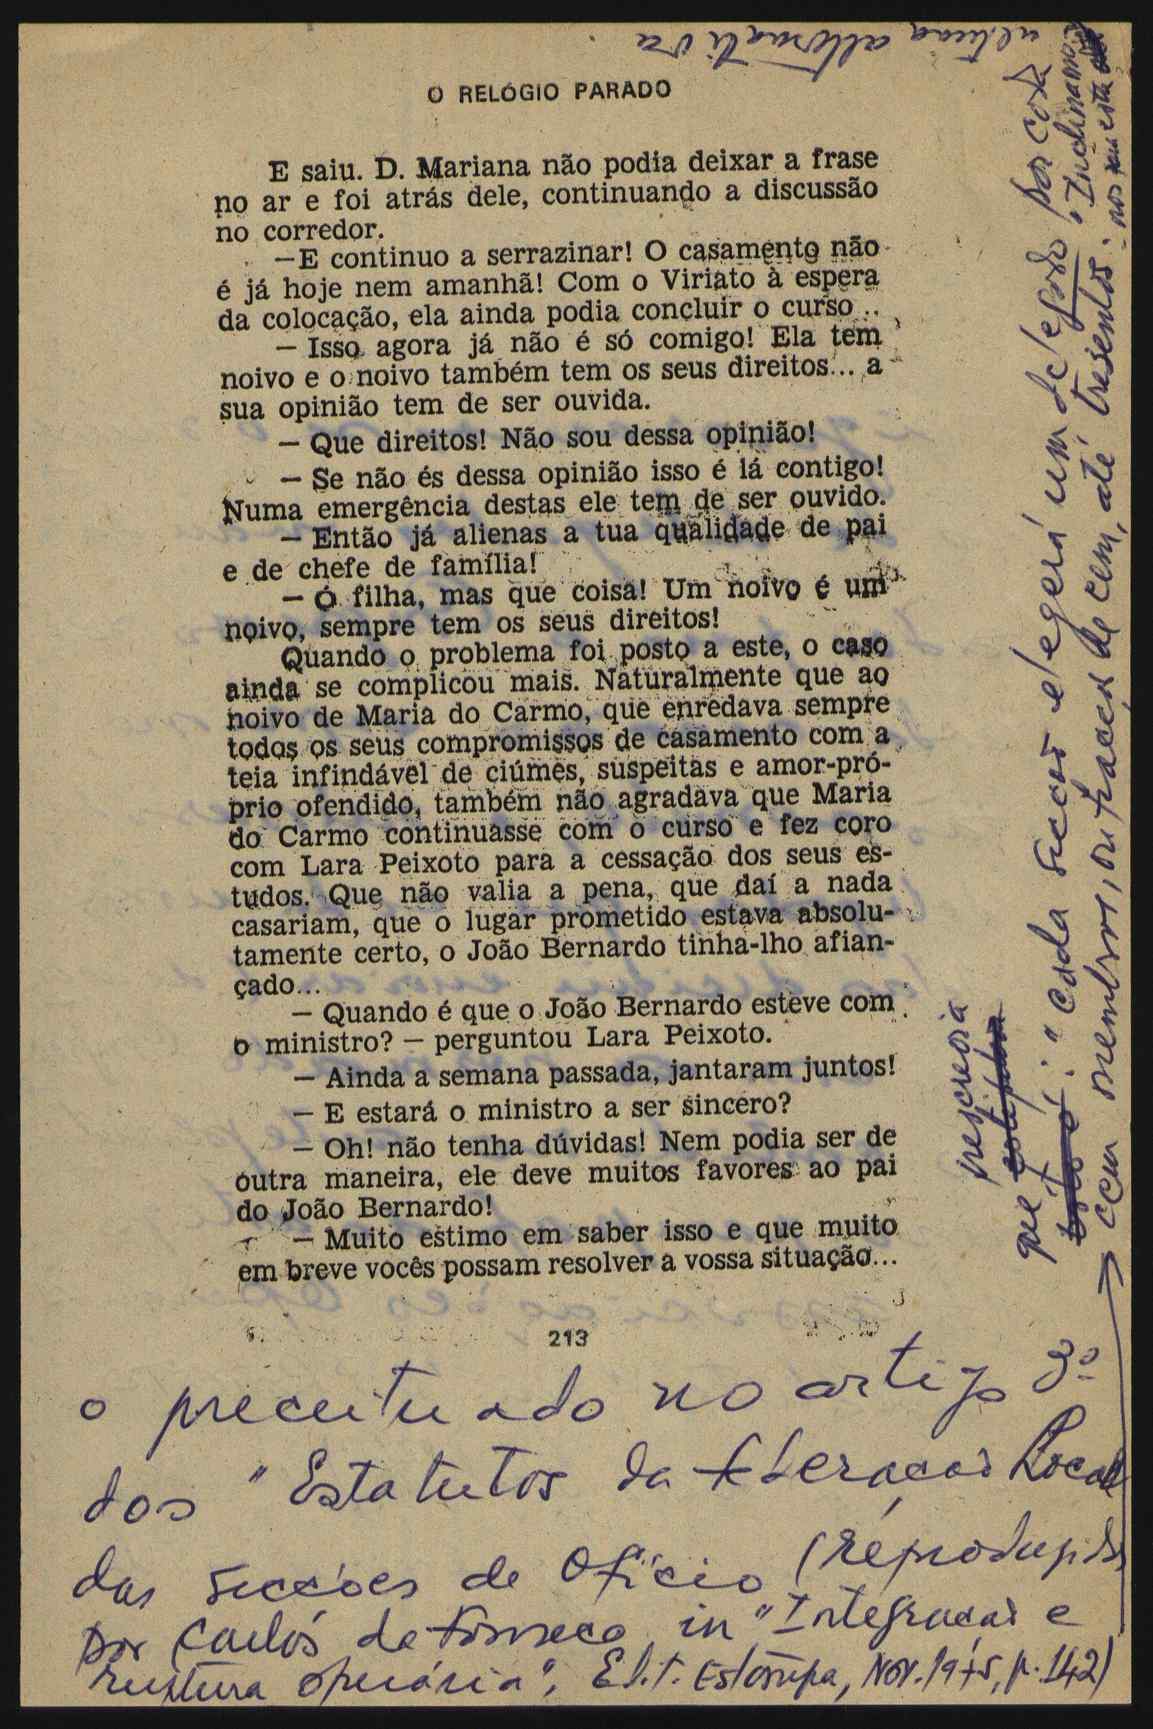 O RELÓGIO PARADO
E saiu. D. Mariana não podia deixar a frase
no ar e foi atrás dele, continuando a discussão
no corredor.
—E continuo a serrazinar! O casamento não
é já hoje nem amanhã! Com o Viriato à espera
da colocação, ela ainda podia concluir o curso...
— Isso agora já não é só comigo! Ela tem
noivo e o noivo também tem os seus direitos... a
sua opinião tem de ser ouvida.
— Que direitos! Não sou dessa opinião!
— Se não és dessa opinião isso é lá contigo!
Numa emergência destas ele tem de ser ouvido.
— Então já alienas a tua qualidade de pai
e de chefe de família!
— Ó filha, mas que coisa! Um noivo é um
noivo, sempre tem os seus direitos!
Quando o problema foi posto a este, o caso
ainda se complicou mais. Naturalmente que ao
noivo de Maria do Carmo, que enredava sempre
todos os seus compromissos de casamento com a
teia infindável de ciúmes, suspeitas e amor-pró-
prio ofendido, também não agradava que Maria
do Carmo continuasse com o curso e fez coro
com Lara Peixoto para a cessação dos seus es-
tudos. Que não valia a pena, que daí a nada
casariam, que o lugar prometido estava absolu-
tamente certo, o João Bernardo tinha-lho afian-
çado...
— Quando é que o João Bernardo esteve com
o ministro? — perguntou Lara Peixoto.
— Ainda a semana passada, jantaram juntos!
— E estará o ministro a ser sincero?
— Oh! não tenha dúvidas! Nem podia ser de
outra maneira, ele deve muitos favores ao pai
do João Bernardo!
— Muito estimo em saber isso e que muito
em breve vocês possam resolver a vossa situação...
213
o preceituado no artigo 8º
dos "Estatutos da Federação Local
das Secções de Ofício (reproduzidos
por Carlos da Fonseca in "Integração e
ruptura operária", Edit. Estampa, Nov. 1975, p. 142)
prescrevia
que : "Cada secção elegerá um delegado por cada
cem membros, ou fracção de cem, até tresentos. Inclinamo-
nos nesta
última alternativa.